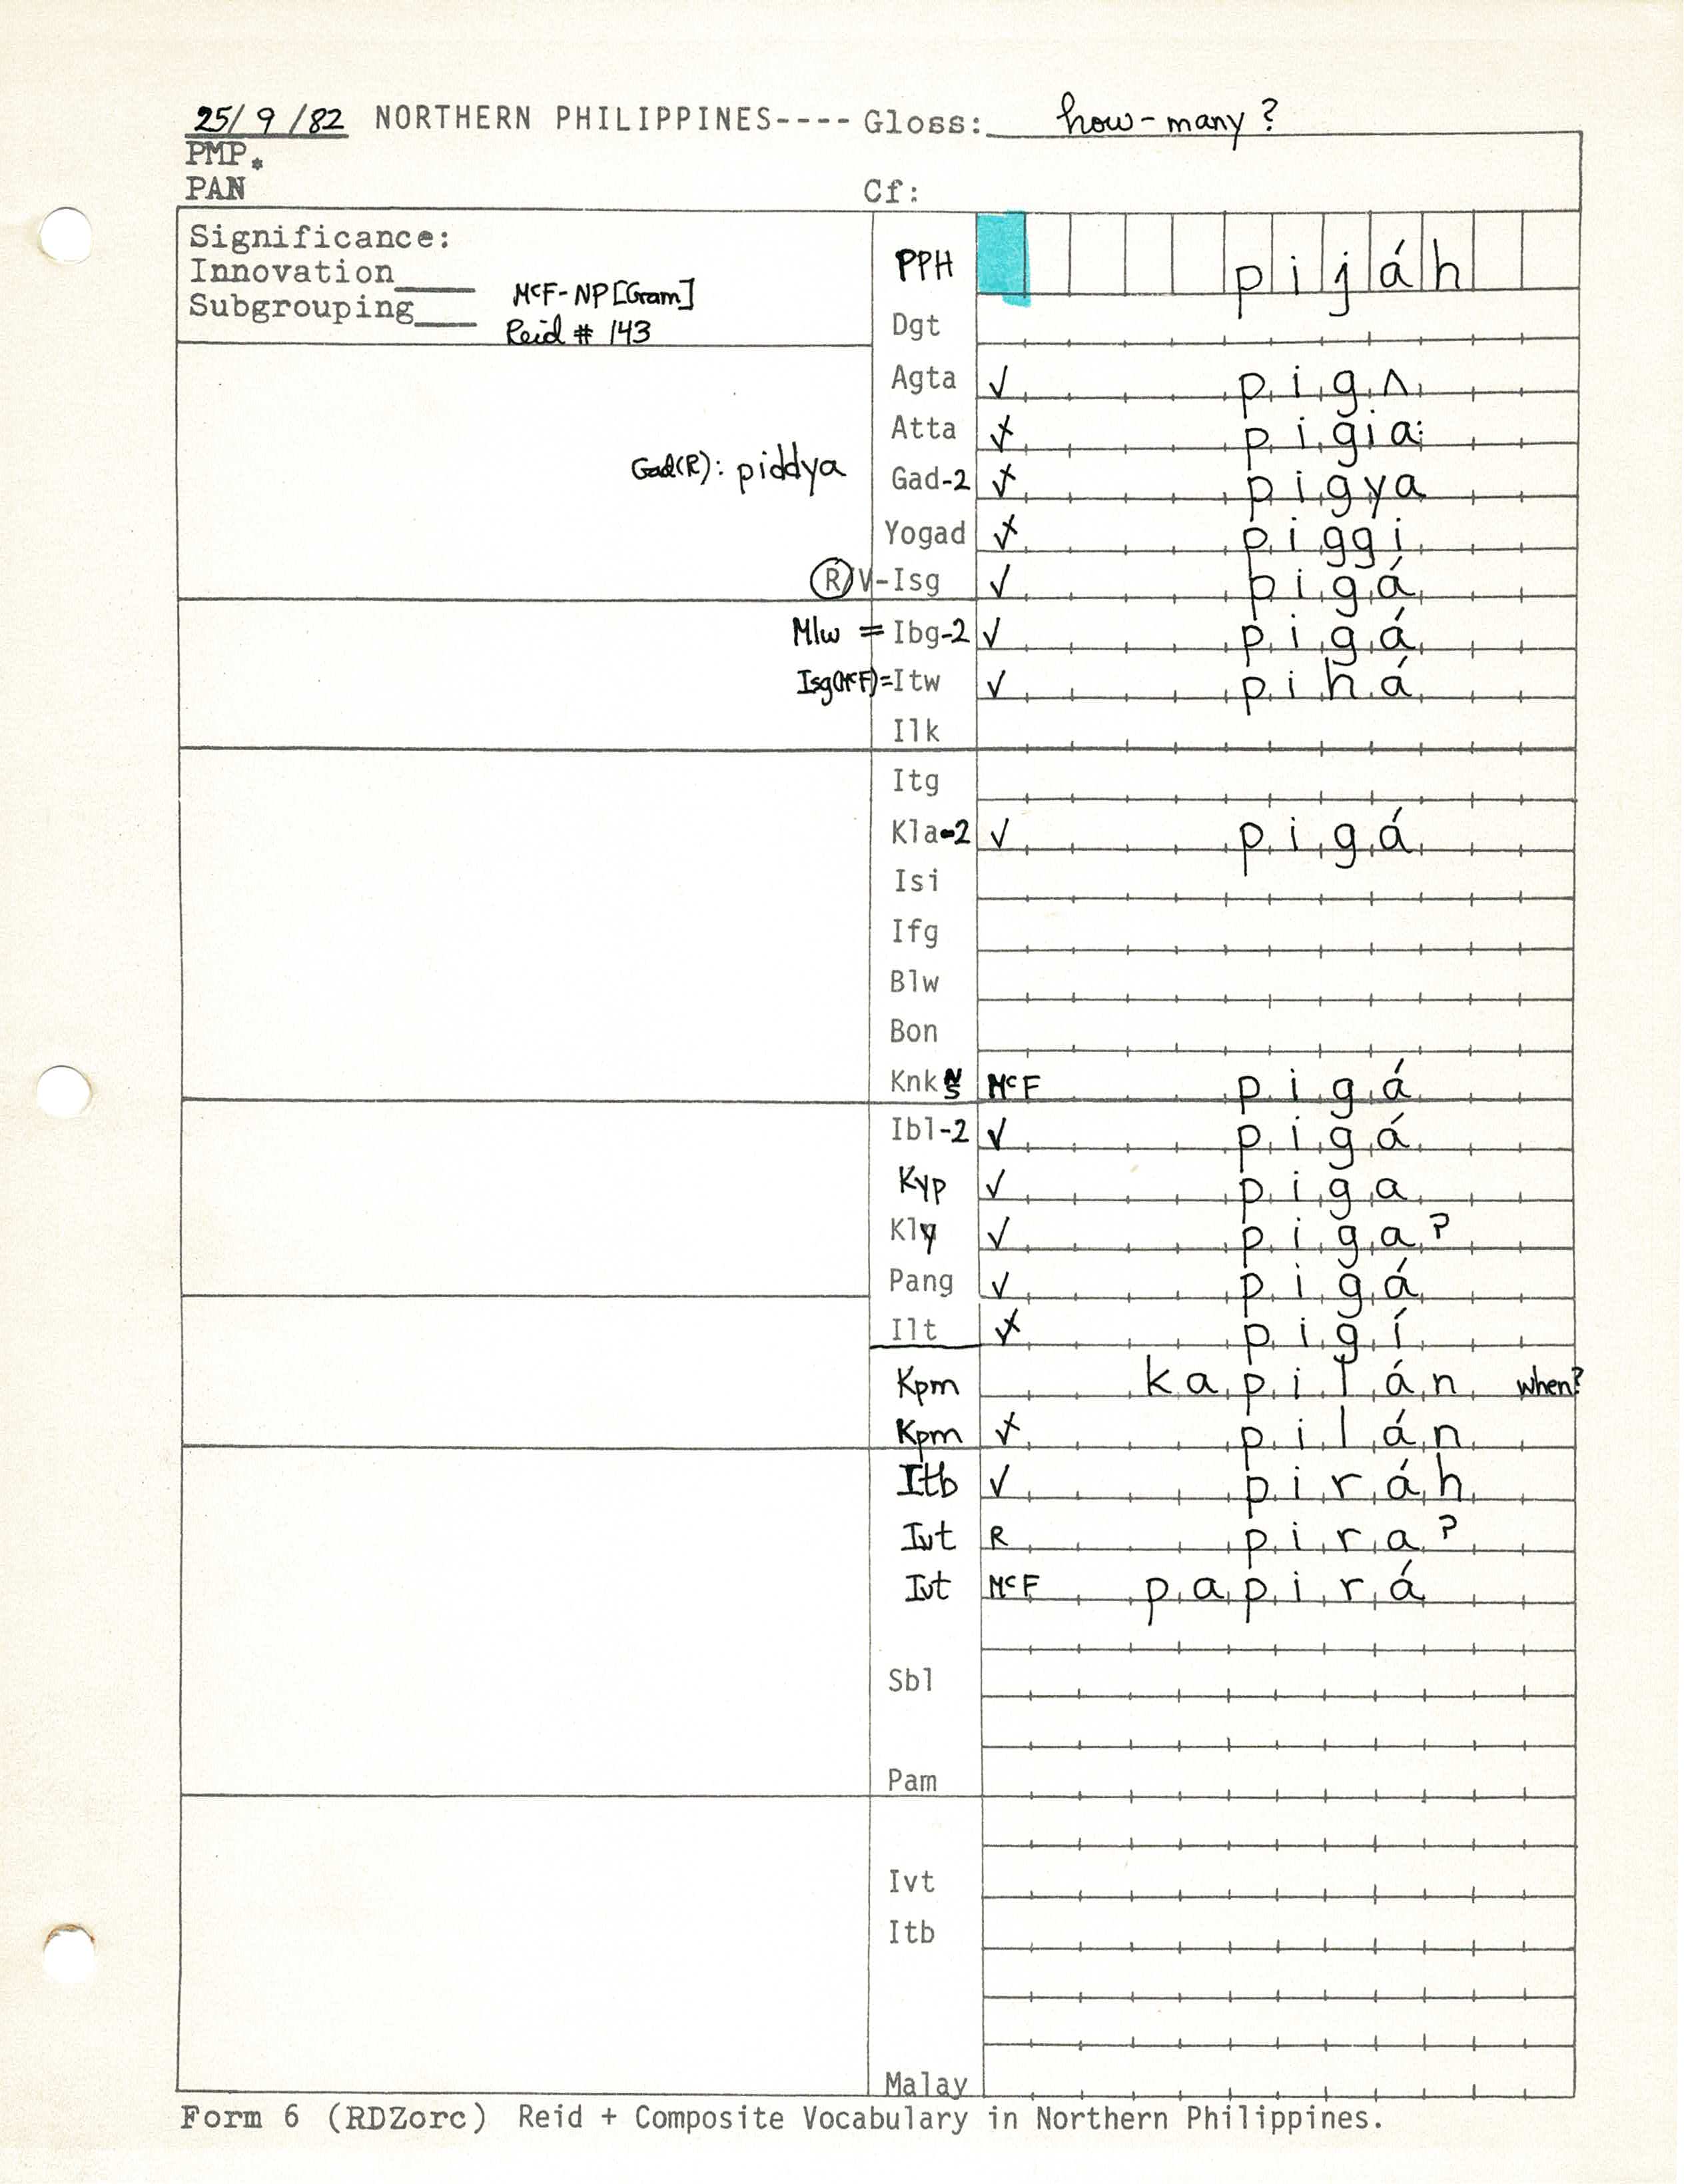 25/9/82 NORTHERN PHILIPPINES---- Gloss: how-many?
PMP*
PAN Cf:
Significance:
Innovation____
Subgrouping____
McF-NP[Gram]
Reid # 143
PPH p i j á h
Dgt
Agta ✓ p i g ʌ
Atta ✓ p i g i a:
Gad(R): piddya Gad-2 ✓ p i g y a
Yogad ✓ p i g g i
R/V-Isg ✓ p i g á
Mlw = Ibg-2 ✓ p i g á
Isg(McF)=Itw ✓ p i h á
Ilk
Itg
Kla-2 ✓ p i g á
Isi
Ifg
Blw
Bon
Knk N S McF p i g á
Ibl-2 ✓ p i g á
Kyp ✓ p i g a
Kly ✓ p i g a ?
Pang ✓ p i g á
Ilt ✓ p i g í
Kpm k a p i l á n when?
Kpm ✓ p i l á n
Itb ✓ p i r á h
Ivt R p i r a ?
Ivt McF p a p i r á
Sbl
Pam
Ivt
Itb
Malay
Form 6 (RDZorc) Reid + Composite Vocabulary in Northern Philippines.